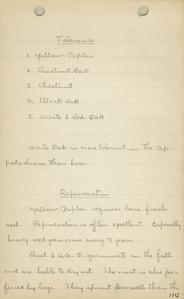 Tolerance
1. Yellow Poplar
2. Chestnut Oak
3. Chestnut
4. Black Oak
5. White & Red Oak
White Oak is more tolerant in the Ap-
palachians than here.
Reproduction
Yellow Poplar requires bare fresh
soil. Reproduction is often excellent. Especially
heavy seed years occur every 7 years.
Chest & W.O. germinate in the fall
and are liable to dry out. The mast is also
by hogs. They sprout less well than the